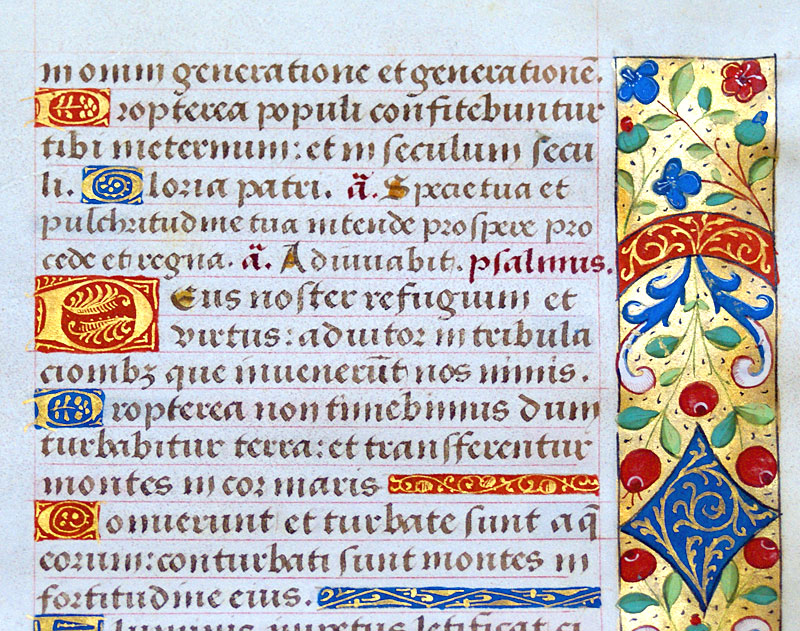 in omni generatione et generationē.
Propterea populi confitebuntur
tibi ineternum: et in seculum secu
li. Gloria patri. a͞. Specie tua et
pulchritudine tua intende prospere pro
cede et regna. a͞. Adiuuabit. psalmus.
Deus noster refugium et
virtus: adiutor in tribula
cionibꝫ que inuenerūt nos nimis.
Propterea non timebimus dum
turbabitur terra: et transferentur
montes in cor maris
Sonuerunt et turbate sunt aq̄
eorum: conturbati sunt montes in
fortitudine eius.
Fluminis impetus letificat ci